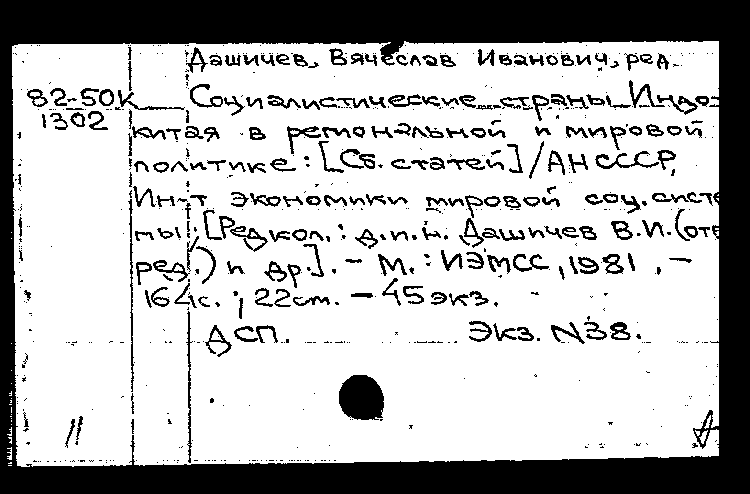 Дашичев, Вячеслав Иванович, ред.
82-50К
1302
Социалистические страны Индо-
китая в региональной и мировой
политике: [Сб. статей]/АН СССР,
Ин-т экономики мировой соц. систе
мы; [Редкол.: д.и.н. Дашичев В.И. (отв
ред.) и др.]. - М.: ИЭМСС, 1981, -
164с.; 22см. - 45 экз.
ДСП. Экз. N38.
11